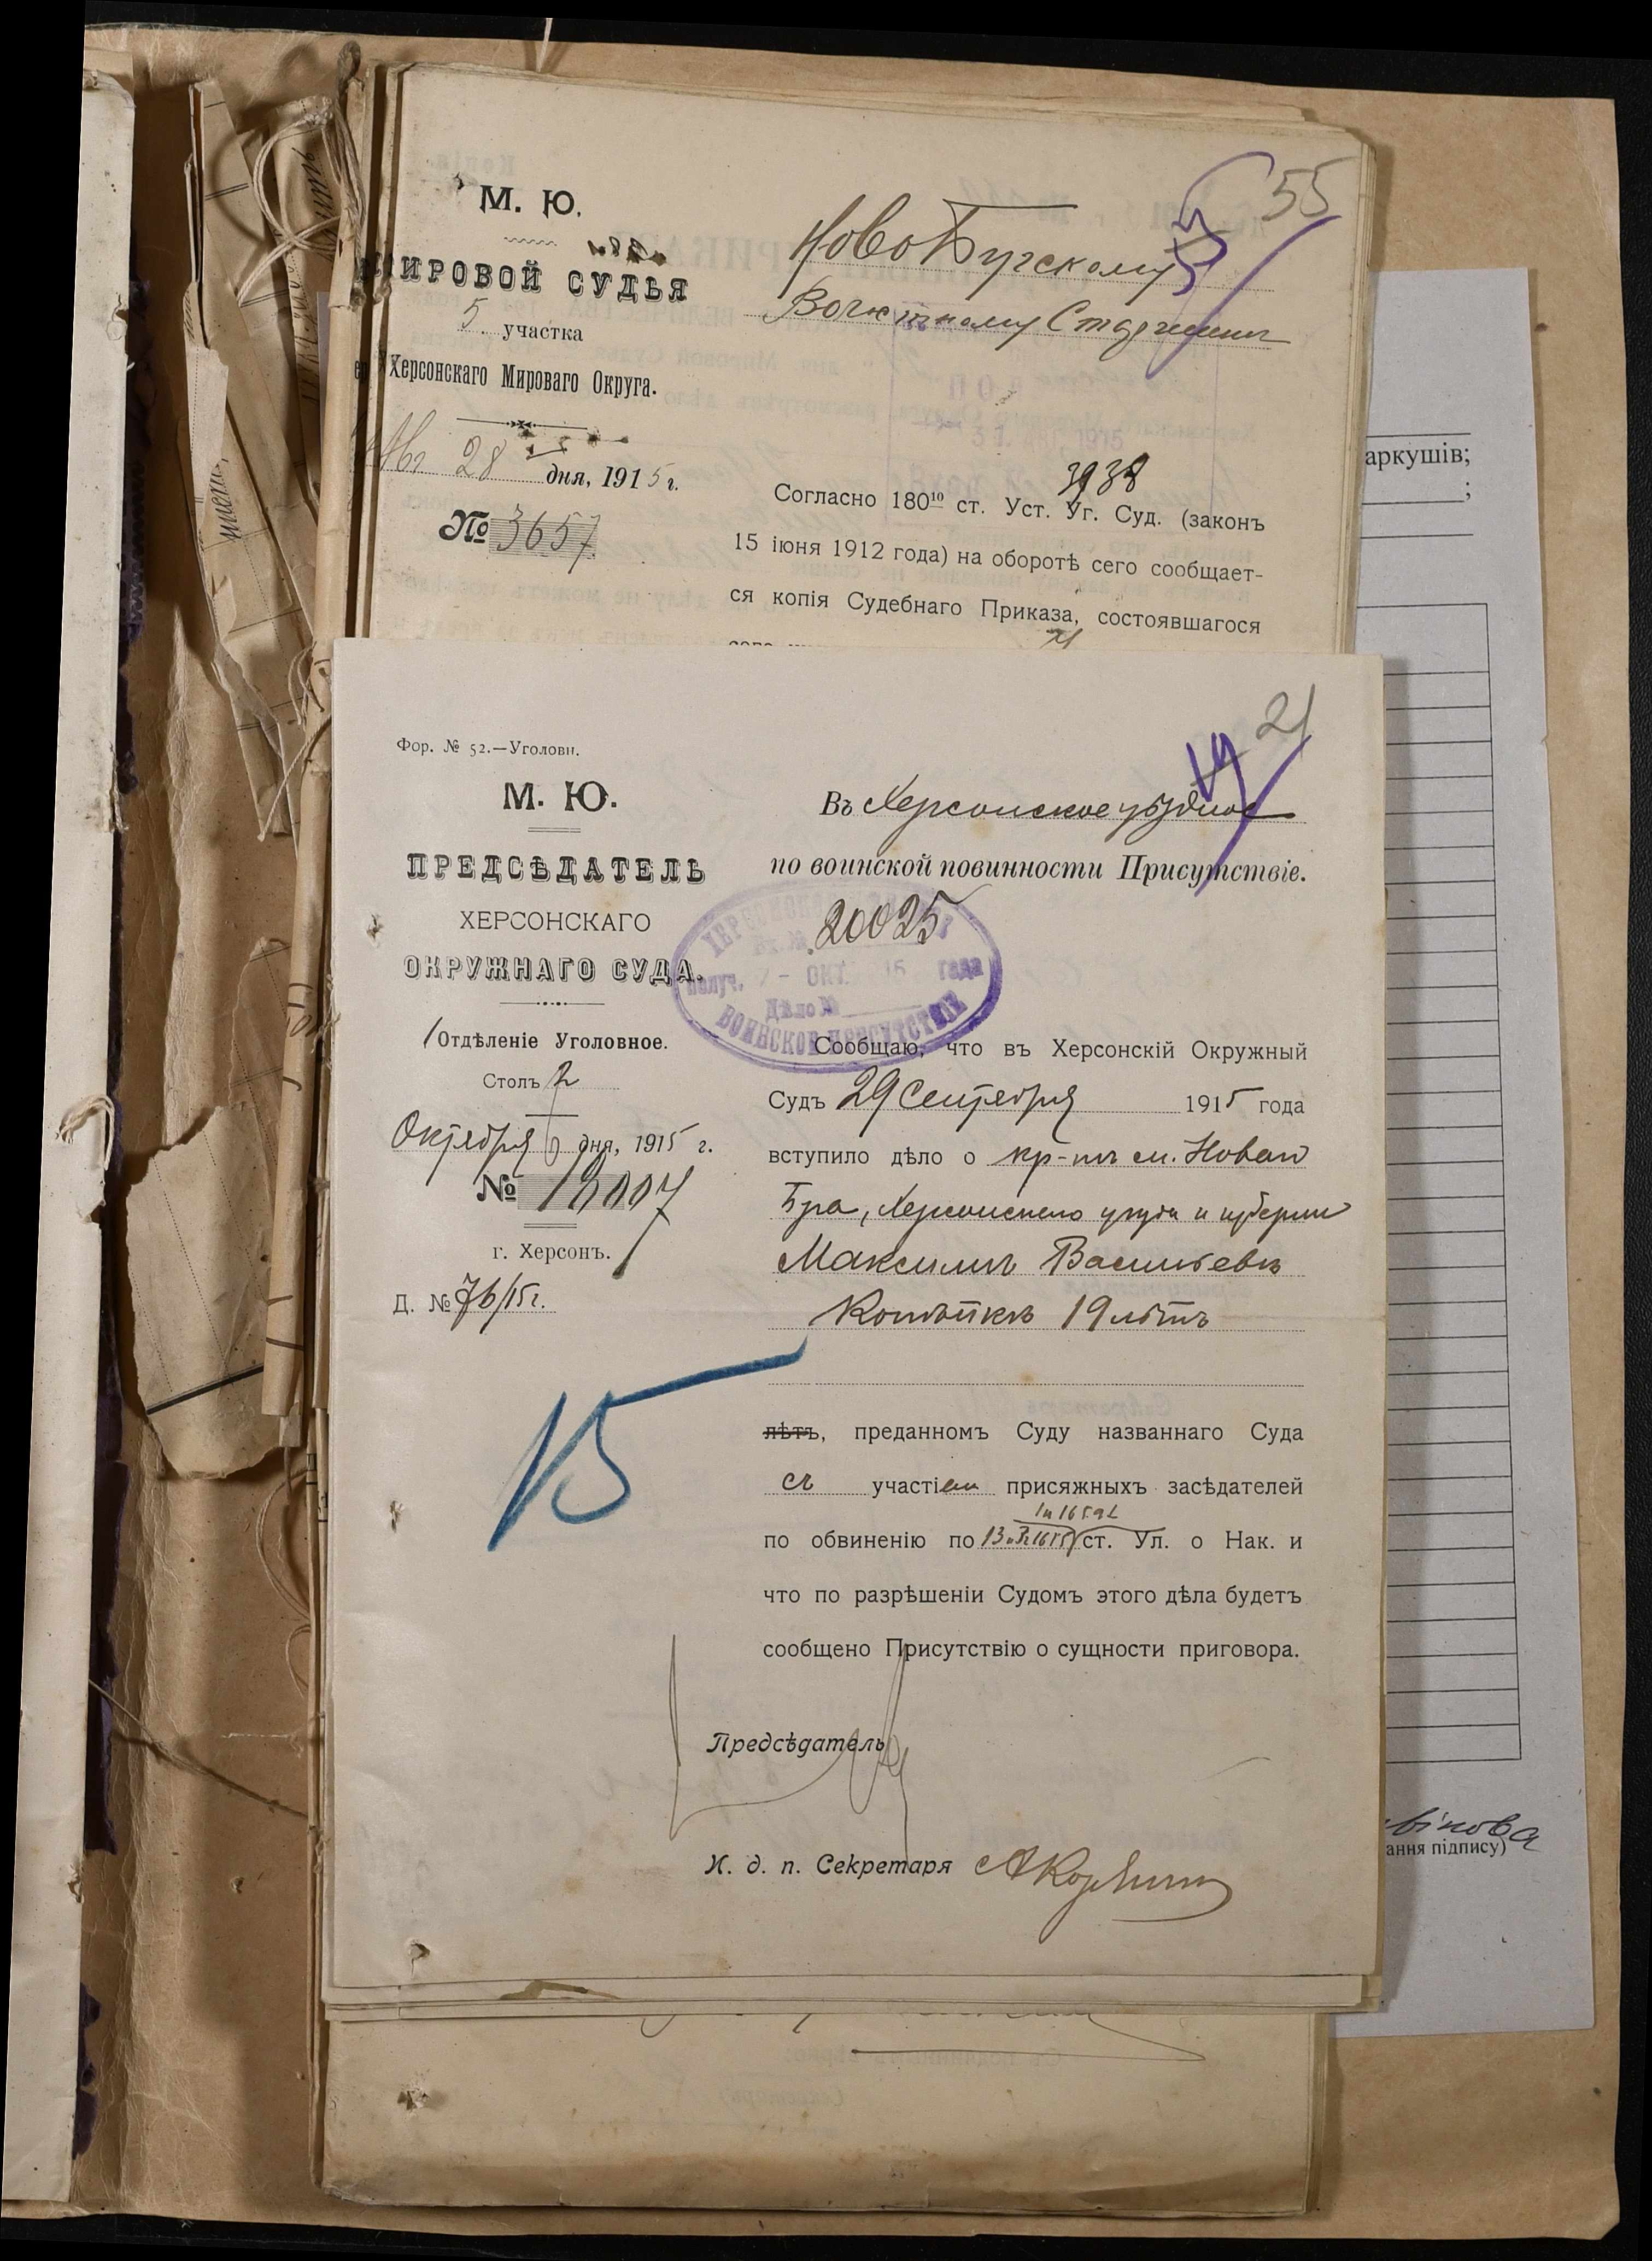 55
М. Ю.
МИРОВОЙ СУДЬЯ
5. участка
Херсонскаго Мироваго Округа.
28 дня, 1915 г.
№ 3657
НовоБугскому
Волостному Старшинѣ
3938
Согласно 180¹⁰ ст. Уст. Уг. Суд. (законъ
15 іюня 1912 года) на оборотѣ сего сообщает-
ся копія Судебнаго Приказа, состоявшагося
аркушів;
;
21
Фор. № 52.—Уголовн.
М. Ю.
ПРЕДСѢДАТЕЛЬ
ХЕРСОНСКАГО
ОКРУЖНАГО СУДА.
1 Отдѣленіе Уголовное.
Столъ 2
Октября 6 дня, 1915 г.
№
г. Херсонъ.
Д. № 76/15 г.
15
Въ Херсонское уѣздное
по воинской повинности Присутствіе.
20025
Получ. 7 - ОКТ. 15 года
Дѣло №
ВОИНСКОЕ ПРИСУТСТВІЕ
Сообщаю, что въ Херсонскій Окружный
Судъ 29 Сентября 1915 года
вступило дѣло о кр-нѣ м. Новаго
Буга, Херсонскаго уѣзда и губерніи
Максимѣ Васильевѣ
Копѣйкѣ 19 лѣтъ
лѣтъ, преданномъ Суду названнаго Суда
съ участіем присяжныхъ засѣдателей
по обвиненію по ст. Ул. о Нак. и
что по разрѣшеніи Судомъ этого дѣла будетъ
сообщено Присутствію о сущности приговора.
Предсѣдатель
И. д. п. Секретаря
ання підпису)